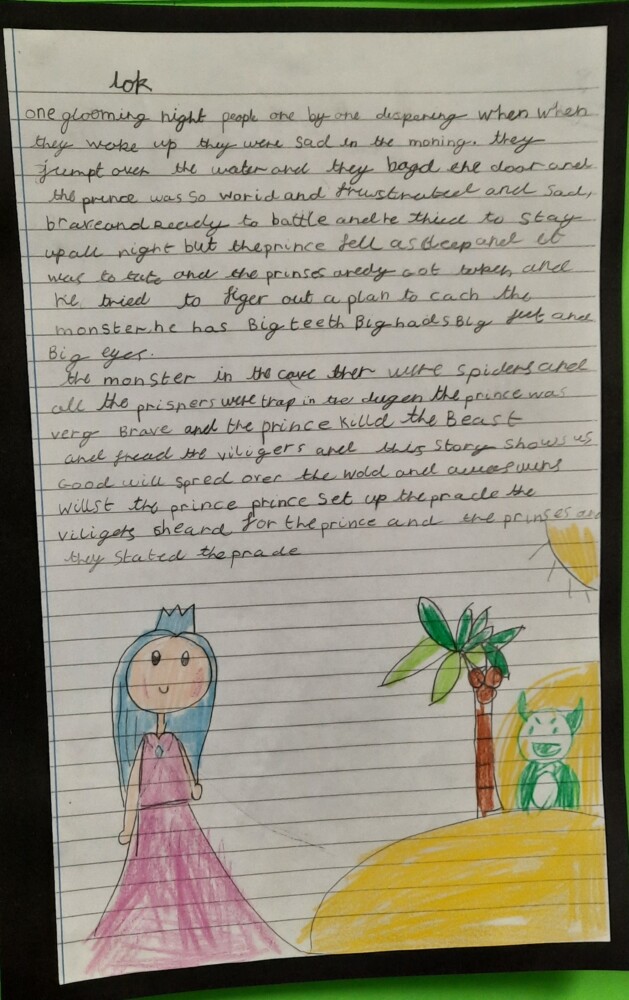 lok
one glooming night people one by one disapering when when
they woke up they were sad in the moning. they
jumpt over the water and they bagd the door and
the prince was so worid and frustrated and sad,
brave and ready to battle and he thied to stay
up all night but the prince fell asleep and it
was to tate and the prinses aredy got taken and
he tried to figer out a plan to cach the
monster. he has Big teeth Big hads Big feet and
Big eyes.
the monster in the cave ther were spiders and
all the prisners were trap in the dugen the prince was
very Brave and the prince killd the Beast
and fread the viligers and this story shows us
Good will spred over the wold and wins
willst the prince prince set up the prade the
viligers sheard for the prince and the prinses and
they stated the prade